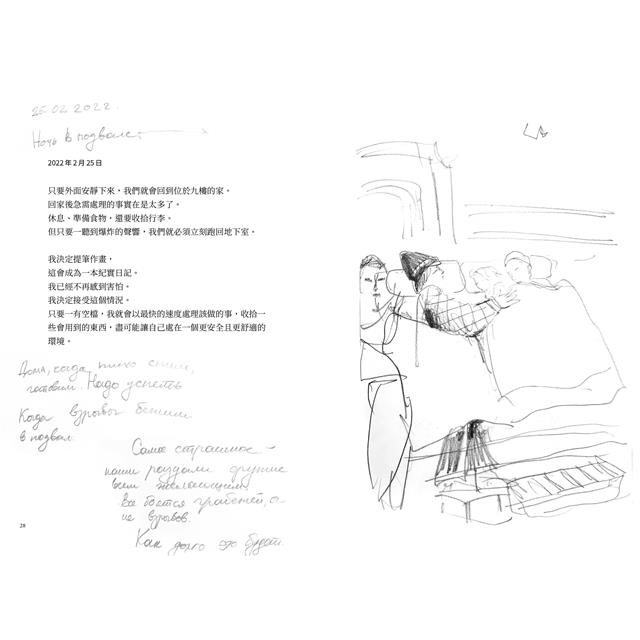 25.02.2022.
Ночь в подвале:
2022 年 2 月 25 日
只要外面安靜下來，我們就會回到位於九樓的家。
回家後急需處理的事實在是太多了。
休息、準備食物，還要收拾行李。
但只要一聽到爆炸的聲響，我們就必須立刻跑回地下室。
我決定提筆作畫，
這會成為一本紀實日記。
我已經不再感到害怕。
我決定接受這個情況。
只要一有空檔，我就會以最快的速度處理該做的事，收拾一
些會用到的東西，盡可能讓自己處在一個更安全且更舒適的
環境。
Дома, когда тихо спим,
готовим. Надо успеть
Когда взрывы бежим
в подвал
Самое страшное –
наши раздали оружие
всем желающим
Все боятся грабежей, а
не взрывов.
Как долго это будет
28